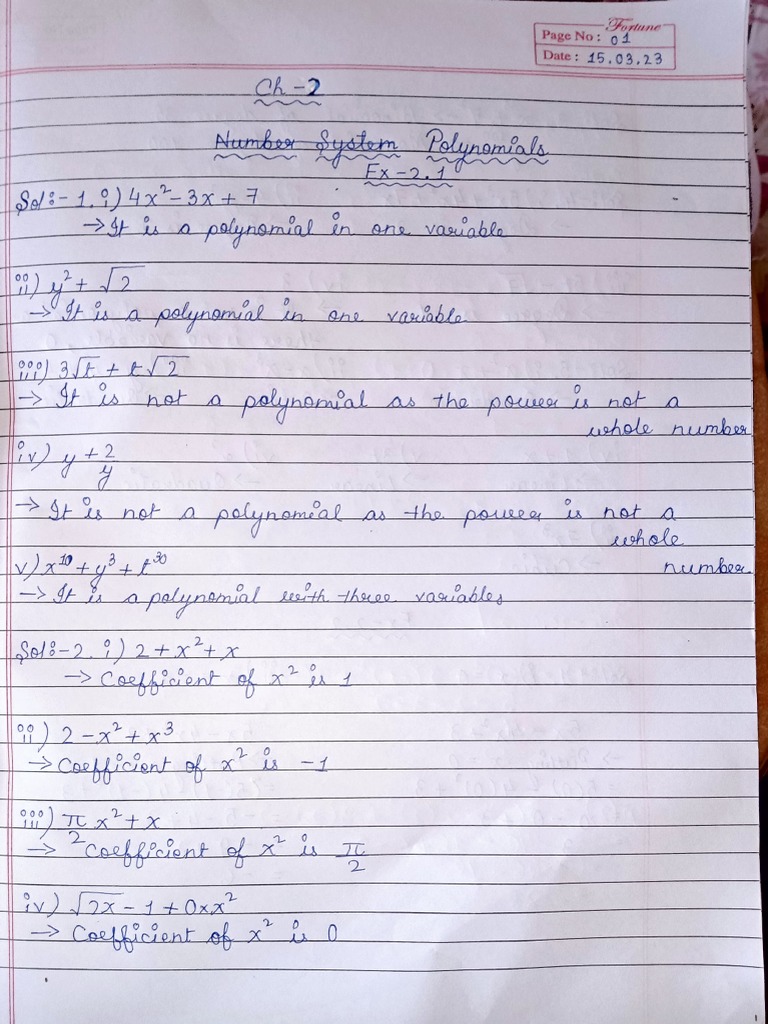 Fortune
Page No: 01
Date: 15.03.23
Ch-2
Number System Polynomials
Ex-2.1
Sol:- 1. i) 4x² - 3x + 7
→ It is a polynomial in one variable
ii) y² + √2
→ It is a polynomial in one variable
iii) 3√t + t√2
→ It is not a polynomial as the power is not a
whole number
iv) y + 2/y
→ It is not a polynomial as the power is not a
whole
number
v) x¹⁰ + y³ + t³⁰
→ It is a polynomial with three variables
Sol:- 2. i) 2 + x² + x
→ Coefficient of x² is 1
ii) 2 - x² + x³
→ Coefficient of x² is -1
iii) π/2 x² + x
→ Coefficient of x² is π/2
iv) √2x - 1 + 0xx²
→ Coefficient of x² is 0